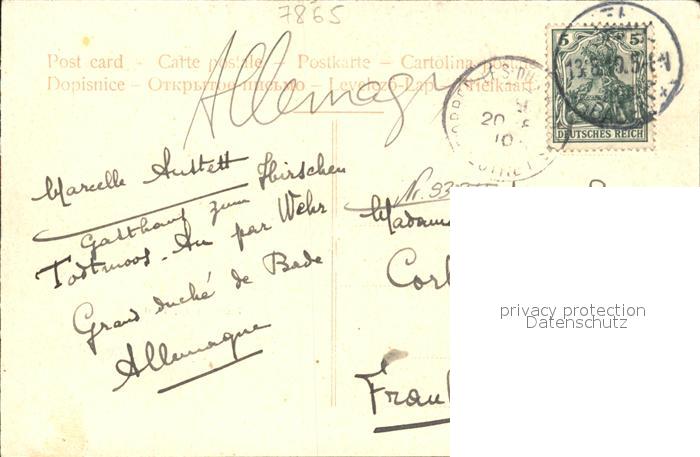 7865
Post card - Carte postale - Postkarte - Cartolina postale
Dopisnice - Открытое письмо - Levelező-Lap - Briefkaart
Allemagne
5 5
DEUTSCHES REICH
20
10
Marcelle Austett Hirschen
Gasthaus zum
Todtmoos-Au par Wehr
Grand duché de Bade
Allemagne
Nr.
Madame
privacy protection
Datenschutz